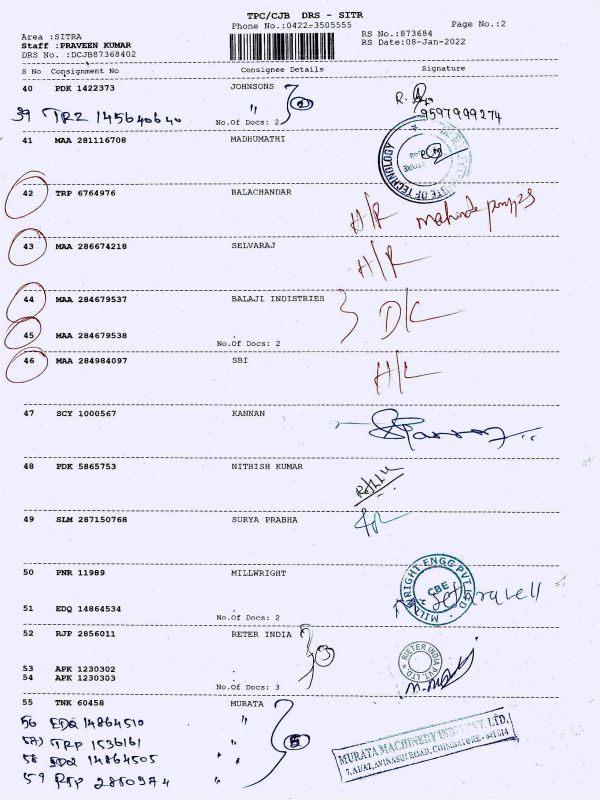 TPC/CJB DRS - SITR
Phone No.:0422-3505555
Page No.:2
Area :SITRA
RS No.:873684
Staff :PRAVEEN KUMAR
RS Date:08-Jan-2022
DRS No. :DCJB87368402
S No Consignment No Consignee Details Signature
40 PDK 1422373 JOHNSONS
39 TRZ 145640640 "
No.Of Docs: 2
9597999274
41 MAA 281116708 MADHUMATHI
OF TECHNOLOGY
42 TRP 6764976 BALACHANDAR
H/R
43 MAA 286674218 SELVARAJ
H/R
44 MAA 284679537 BALAJI INDISTRIES
D/C
45 MAA 284679538
No.Of Docs: 2
46 MAA 284984097 SBI
H/L
47 SCY 1000567 KANNAN
48 PDK 5865753 NITHISH KUMAR
49 SLM 287150768 SURYA PRABHA
50 PNR 11989 MILLWRIGHT
MILLWRIGHT ENGG PVT LTD
CBE
51 EDQ 14864534
No.Of Docs: 2
52 RJP 2856011 RETER INDIA
3
RIETER INDIA PVT. LTD.
53 APK 1230302
54 APK 1230303
No.Of Docs: 3
55 TNK 60458 MURATA
56 EDQ 14864510 "
57) TRP 1536161 "
5
58 EDQ 14864505 "
MURATA MACHINERY INDIA PVT. LTD.
7, AVINASHI ROAD, COIMBATORE - 641014